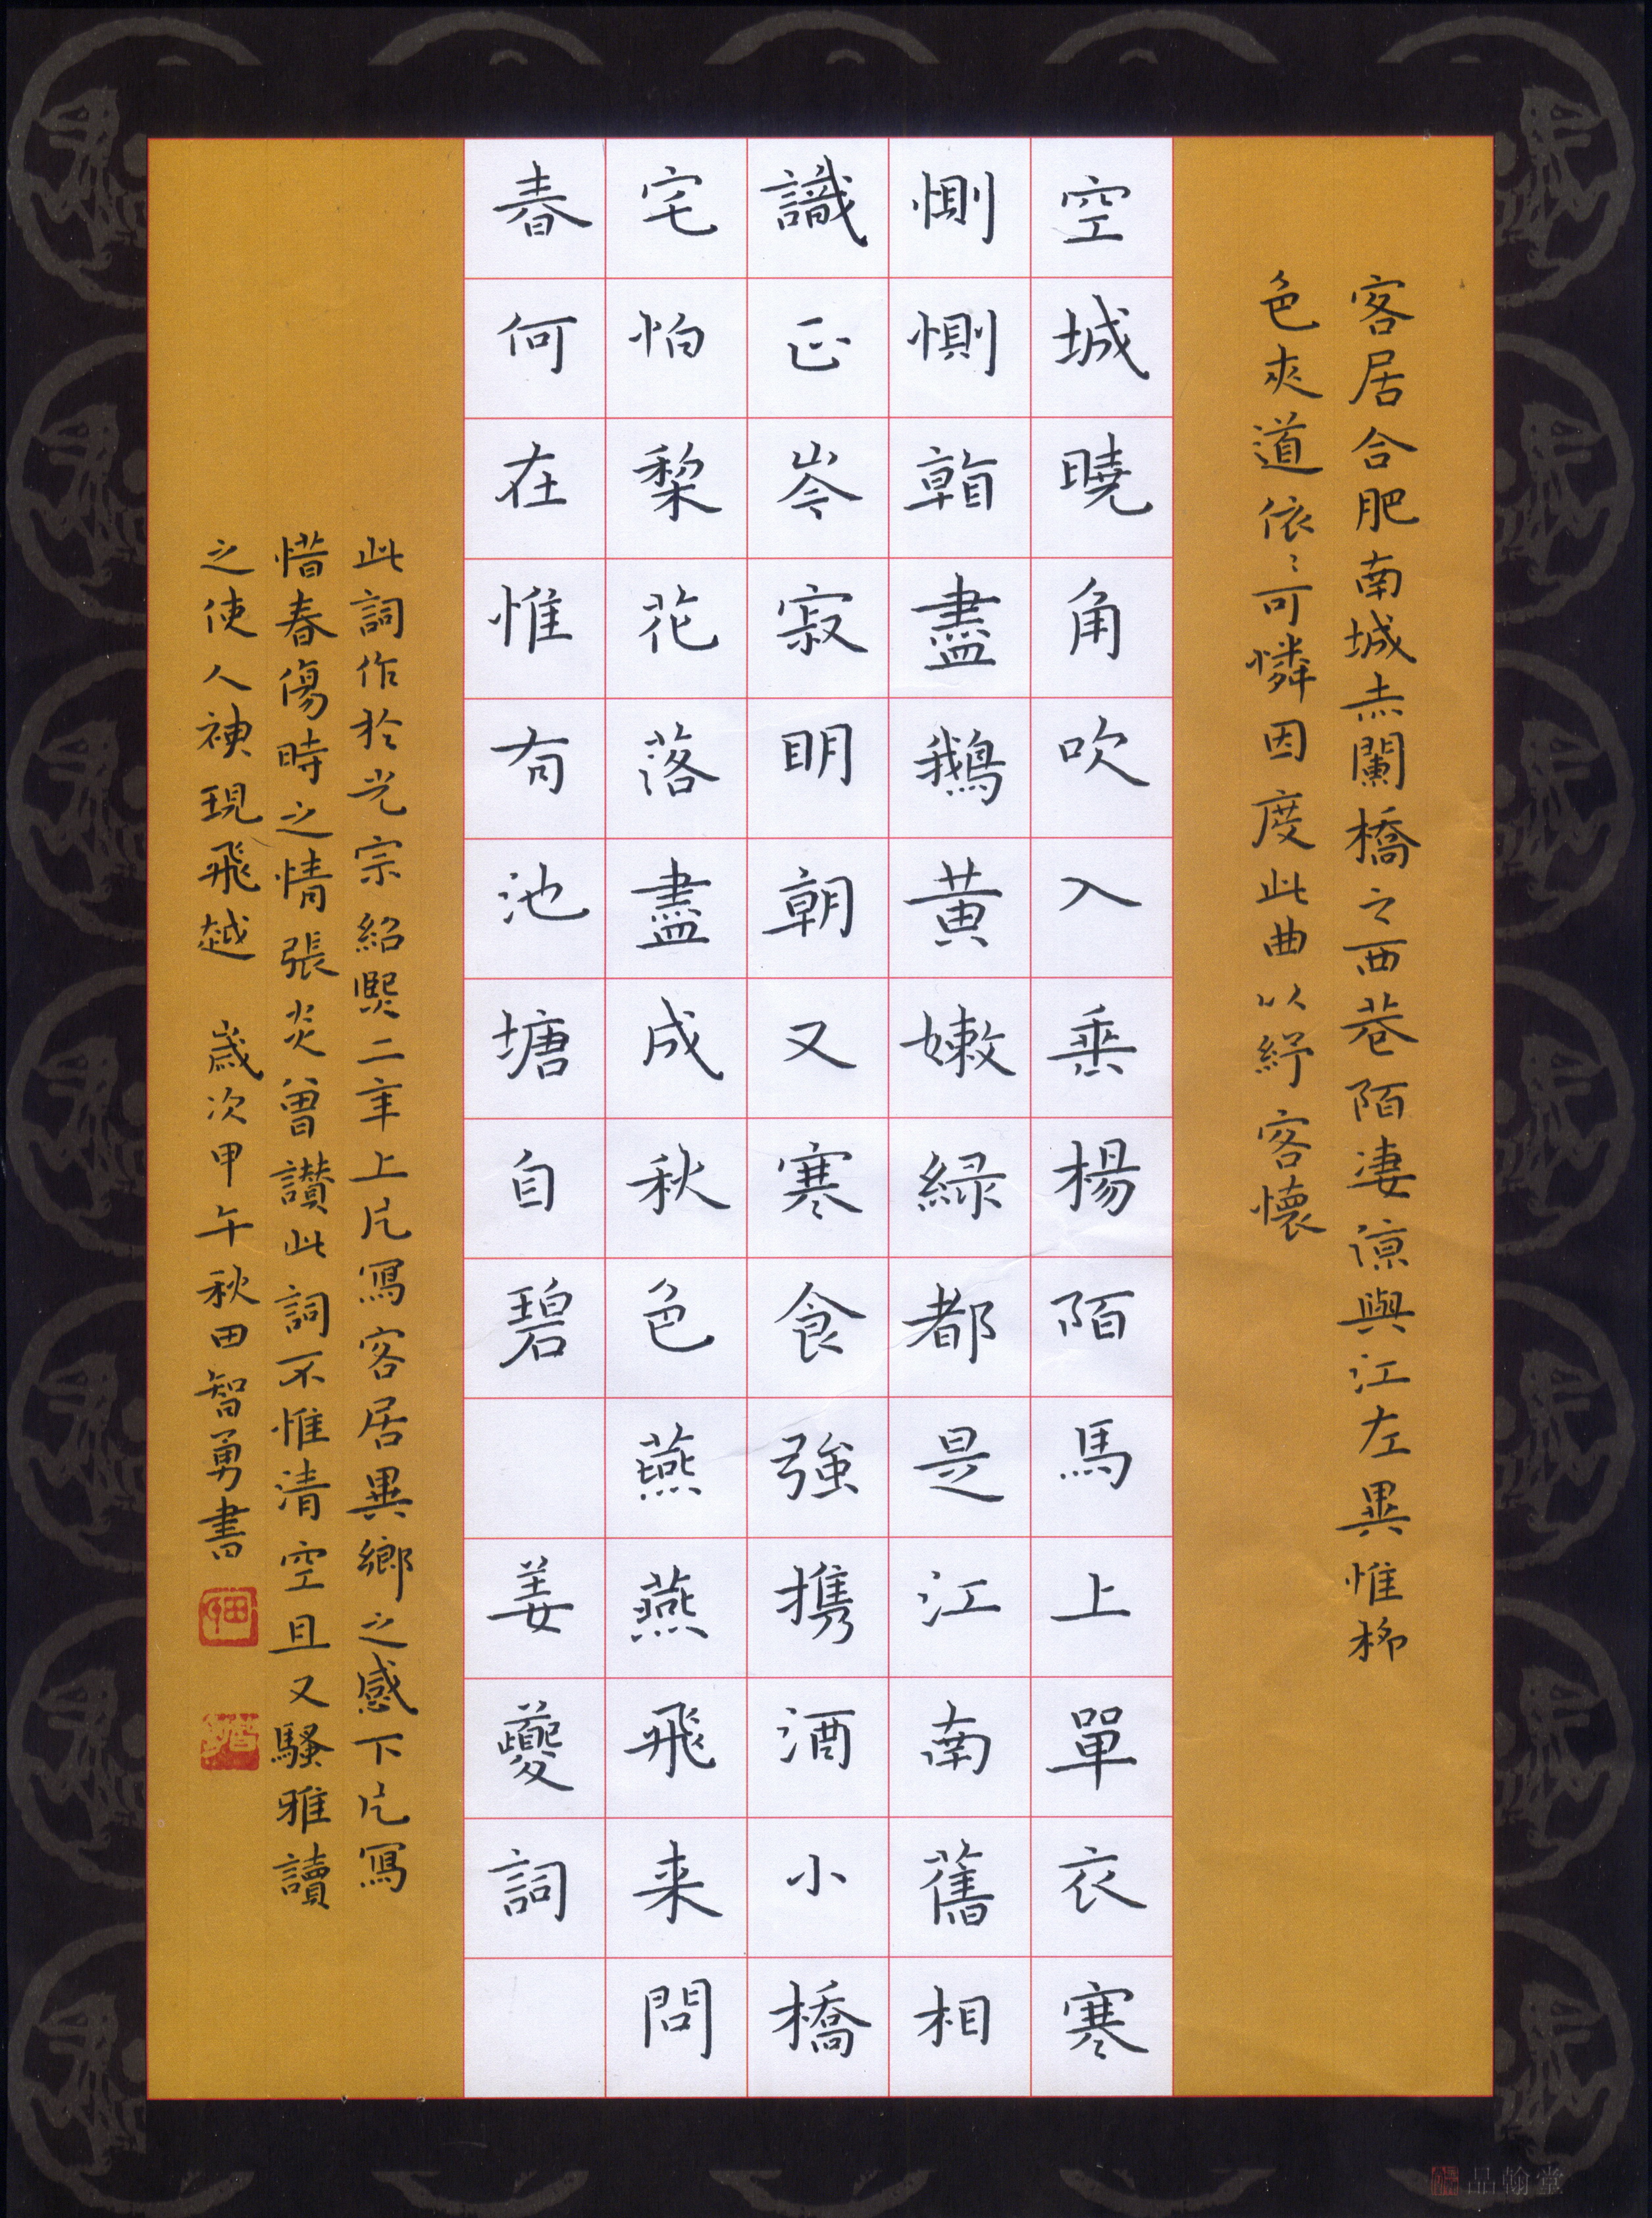 客居合肥南城赤闌橋之西巷陌凄涼與江左異惟柳
色夾道依〻可憐因度此曲以紓客懷
空城曉角吹入垂楊陌馬上單衣寒
惻惻看盡鵝黃嫩綠都是江南舊相
識正岑寂明朝又寒食強携酒小橋
宅怕梨花落盡成秋色燕燕飛来問
春何在惟有池塘自碧 姜夔詞
此詞作於光宗紹熙二年上片寫客居異鄉之感下片寫
惜春傷時之情張炎曾讚此詞不惟清空且又騷雅讀
之使人神現飛越 歲次甲午秋田智勇書
田
品翰堂